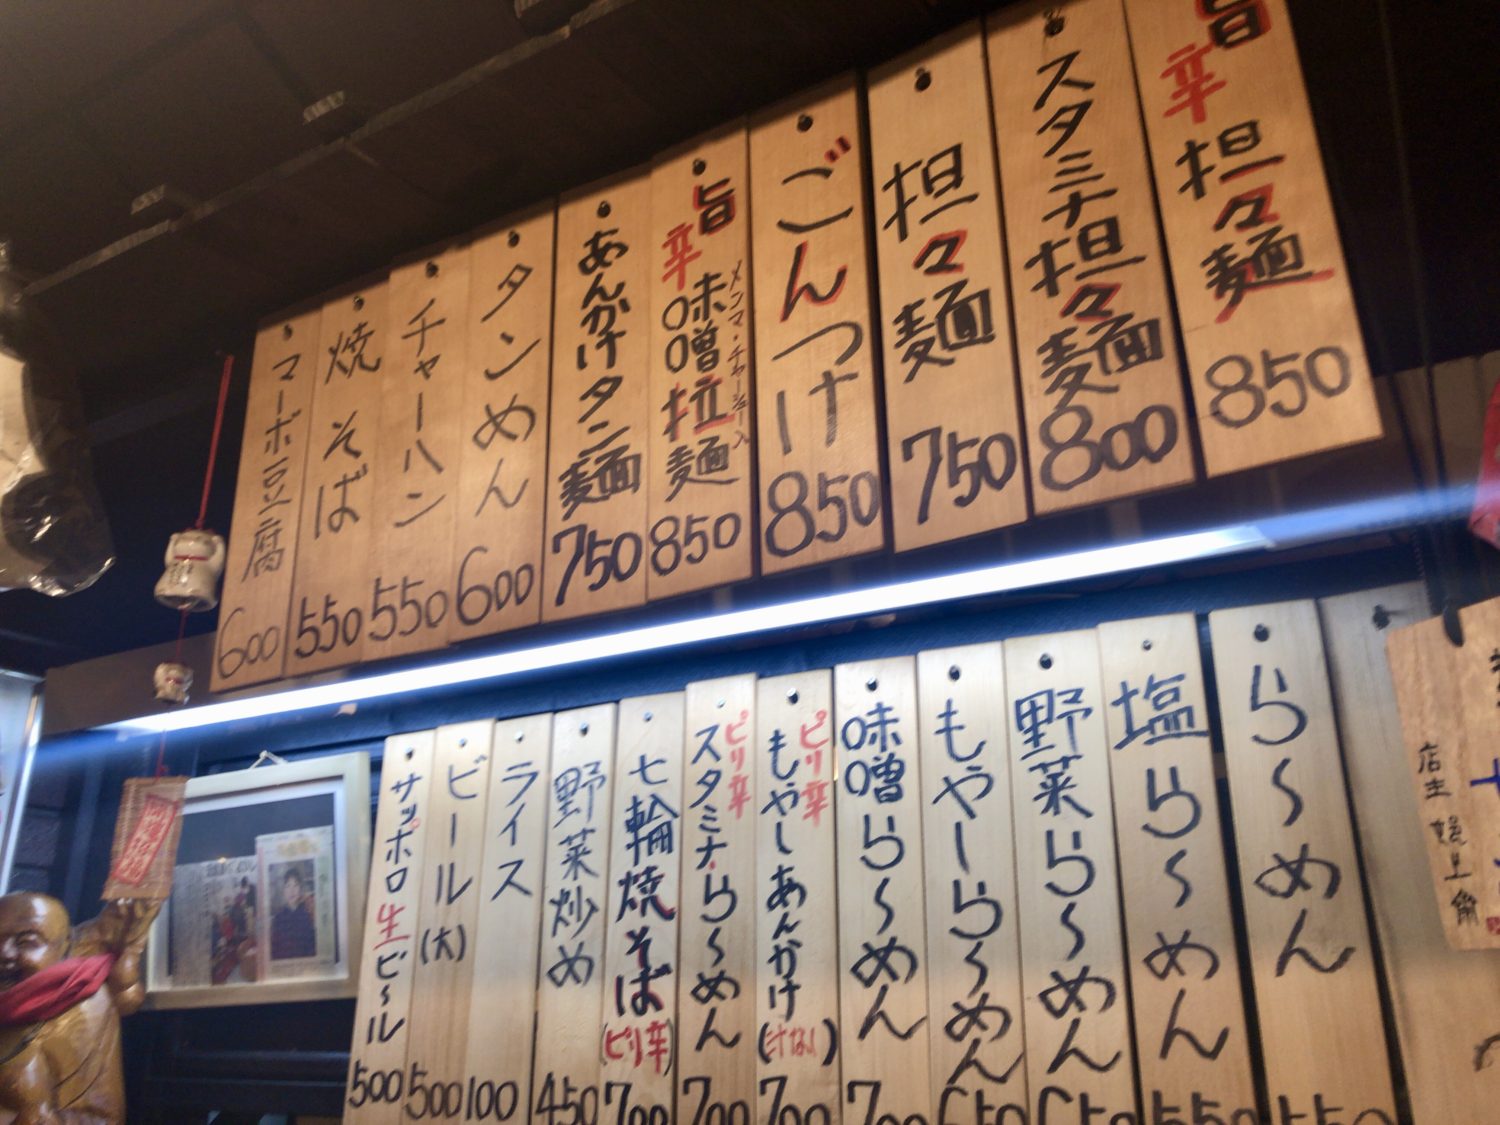 旨辛担々麺 850
スタミナ担々麺 800
担々麺 750
ごんつけ 850
旨辛味噌拉麺 メンマ・チャーシュー入 850
あんかけタン麺 750
タンめん 600
チャーハン 550
焼そば 550
マーボ豆腐 600
ら〜めん 550
塩ら〜めん 550
野菜ら〜めん 650
もやしら〜めん 650
味噌ら〜めん 700
ピリ辛もやしあんかけ(汁なし) 700
ピリ辛スタミナら〜めん 700
七輪焼そば(ピリ辛) 700
野菜炒め 450
ライス 100
ビール(大) 500
サッポロ生ビ〜ル 500
店主